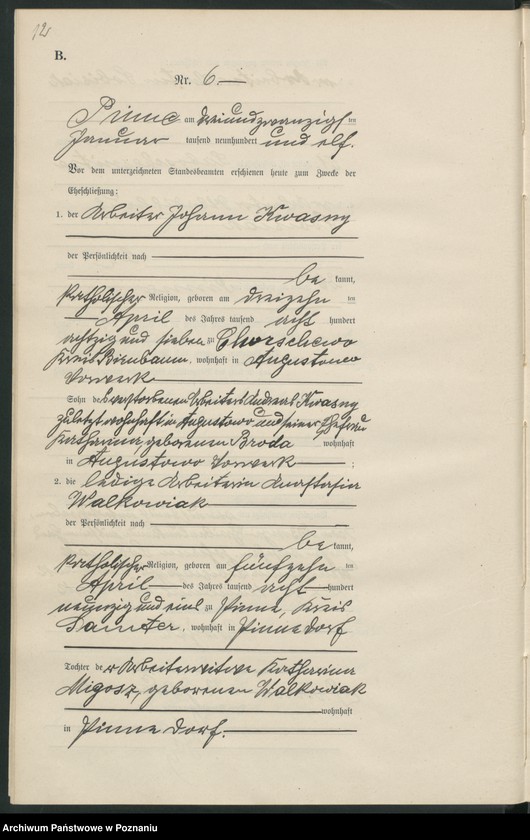 12
B.
Nr. 6.
Pinne am dreiundzwanzigsten
Januar tausend neunhundert und elf.
Vor dem unterzeichneten Standesbeamten erschienen heute zum Zwecke der
Eheschließung:
1. der Arbeiter Johann Kwasny
der Persönlichkeit nach
be kannt,
katholischer Religion, geboren am dreizehn ten
April des Jahres tausend acht hundert
achtzig und sieben zu Chorschewo
Kreis Birnbaum, wohnhaft in Augustowo
Vorwerk
Sohn des verstorbenen Arbeiters Andreas Kwasny
zuletzt wohnhaft in Augustowo und seiner Ehefrau
Katharina, geborenen Broda wohnhaft
in Augustowo Vorwerk ;
2. die ledige Arbeiterin Anastasia
Walkowiak
der Persönlichkeit nach
be kannt,
katholischer Religion, geboren am fünfzehn ten
April des Jahres tausend acht hundert
neunzig und eins zu Pinne, Kreis
Samter, wohnhaft in Pinne Dorf
Tochter der Arbeiterwitwe Katharina
Migosz, geborenen Walkowiak
wohnhaft
in Pinne Dorf.
Archiwum Państwowe w Poznaniu